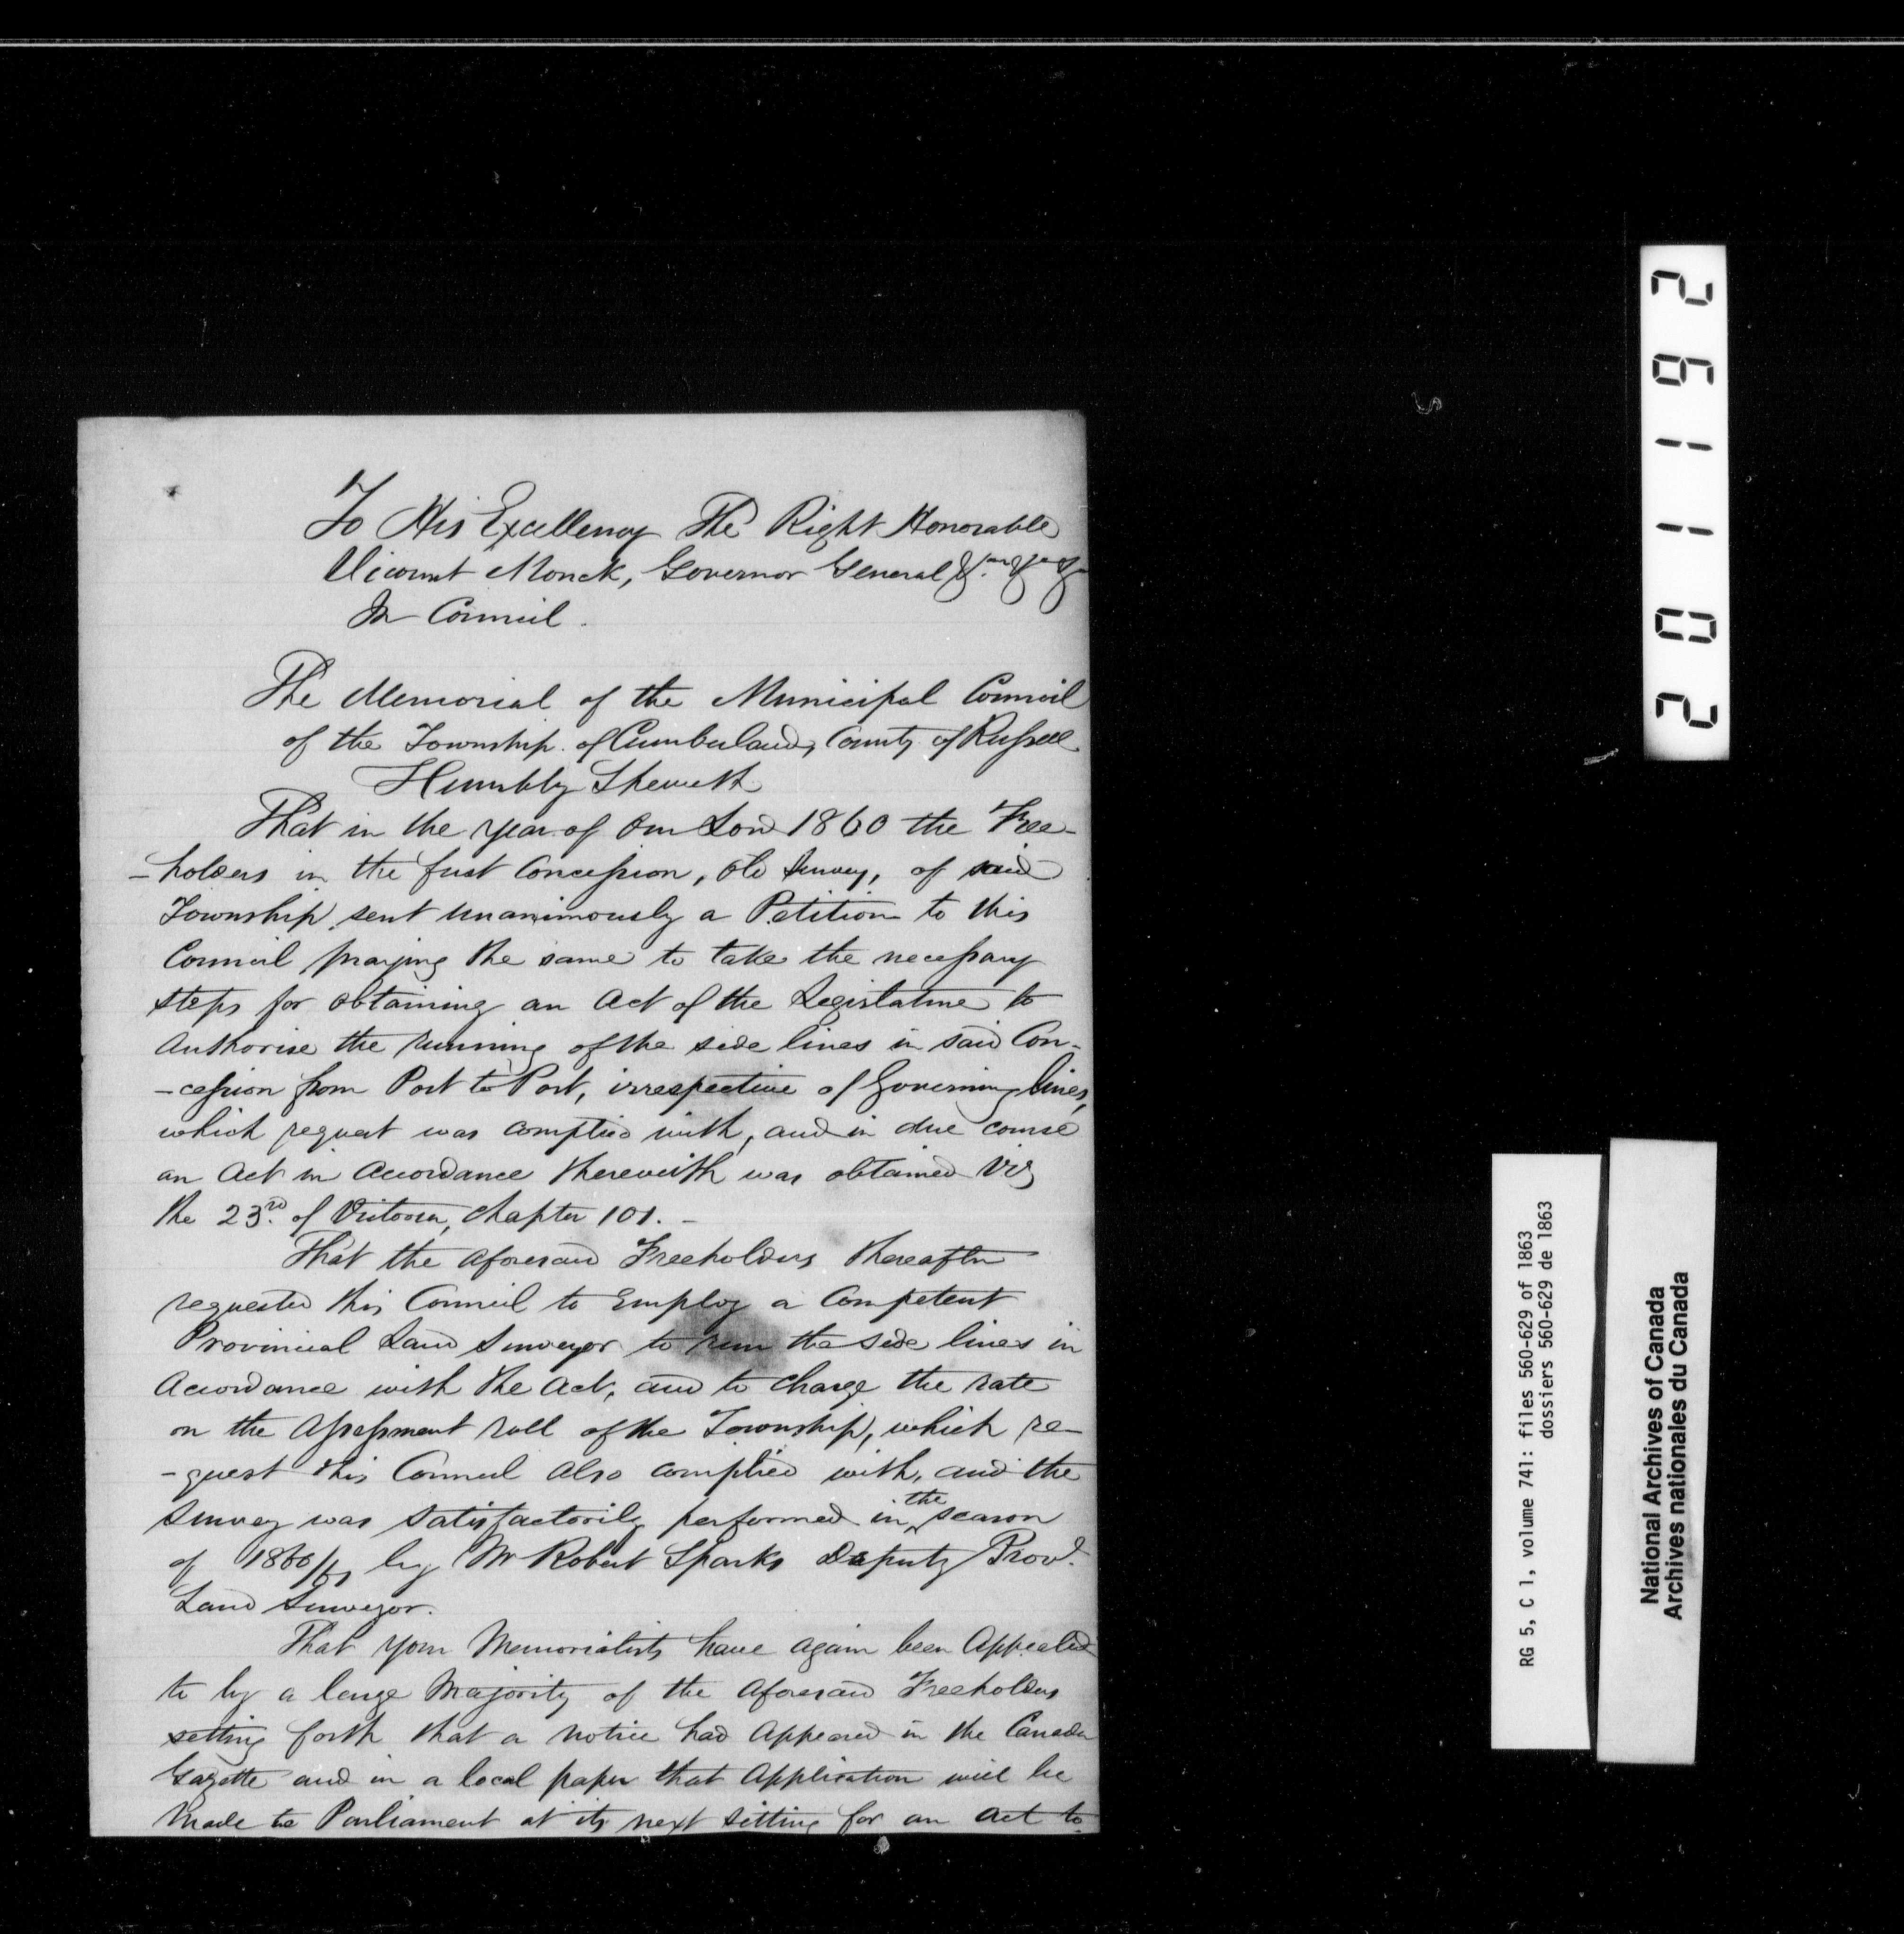 To His Excellency The Right Honorable
Vicount Monck, Governor General &c &c &c
In Council.
The Memorial of the Municipal Council
of the Township of Cumberland, County of Russell
Humbly Sheweth
That in the year of Our Lord 1860 the Free-
-holders in the first Concession, Old Survey, of said
Township sent unanimously a Petition to this
Council praying the same to take the necessary
steps for obtaining an Act of the Legislature to
Authorise the running of the side lines in said Con-
-cession from Post to Post, irrespective of Governing lines,
which request was complied with, and in due course
an Act in Accordance therewith was obtained Viz
the 23rd. of Victoria, Chapter 101. -
That the aforesaid Freeholders thereafter
requested this Council to Employ a Competent
Provincial Land Surveyor to run the side lines in
Accordance with the Act, and to charge the rate
on the Assessment roll of the Township, which re-
-quest this Council also complied with, and the
survey was satisfactorily performed in the season
of 1860/61 by Mr Robert Sparks Deputy Provl.
Land Surveyor.
That your Memorialists have again been Appealed
to by a large Majority of the aforesaid Freeholders
setting forth that a notice had appeared in the Canada
Gazette and in a local paper that Application will be
made to Parliament at its next sitting for an Act to
201192
RG 5, C 1, volume 741: files 560-629 of 1863
dossiers 560-629 de 1863
National Archives of Canada
Archives nationales du Canada